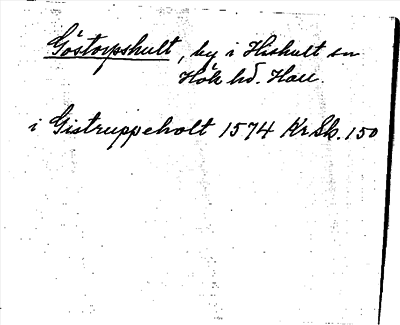 Göstorpshult, by i Hishult sn
Hök hd. Hall.
i Gistruppeholt 1574 Kr.Sk. 150